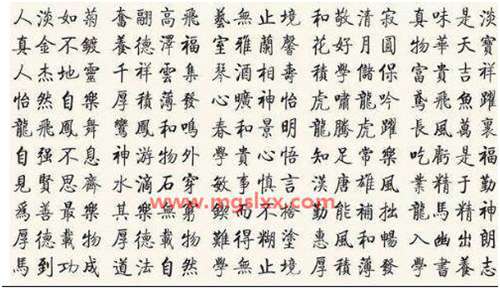 人淡如菊 奮翮高飛 藝無止境 和敬清寂 真味是淡
真金不鍍 養德澤福 室雅蘭馨 花好月圓 物華天寶
人杰地靈 千祥雲集 琴酒相壽 積學儲保 富貴吉祥
怡然自樂 厚積薄發 心曠神怡 虎嘯龍吟 鳶飛魚躍
龍飛鳳舞 鸞鳳和鳴 春和景明 龍騰虎躍 長風萬裏
自强不息 神游物外 學貴心悟 知足常樂 吃虧是福
見賢思齊 水滴石穿 敏事慎言 漢唐雄風 業精于勤
www.mgslxx.com
爲善最樂 其樂無窮 鍥而不捨 勤能補拙 龍馬精神
厚德載物 厚德載物 難得糊塗 惠風和暢 入幽出朗
馬到功成 道德法自然 學無止境 厚積薄發 學書養志